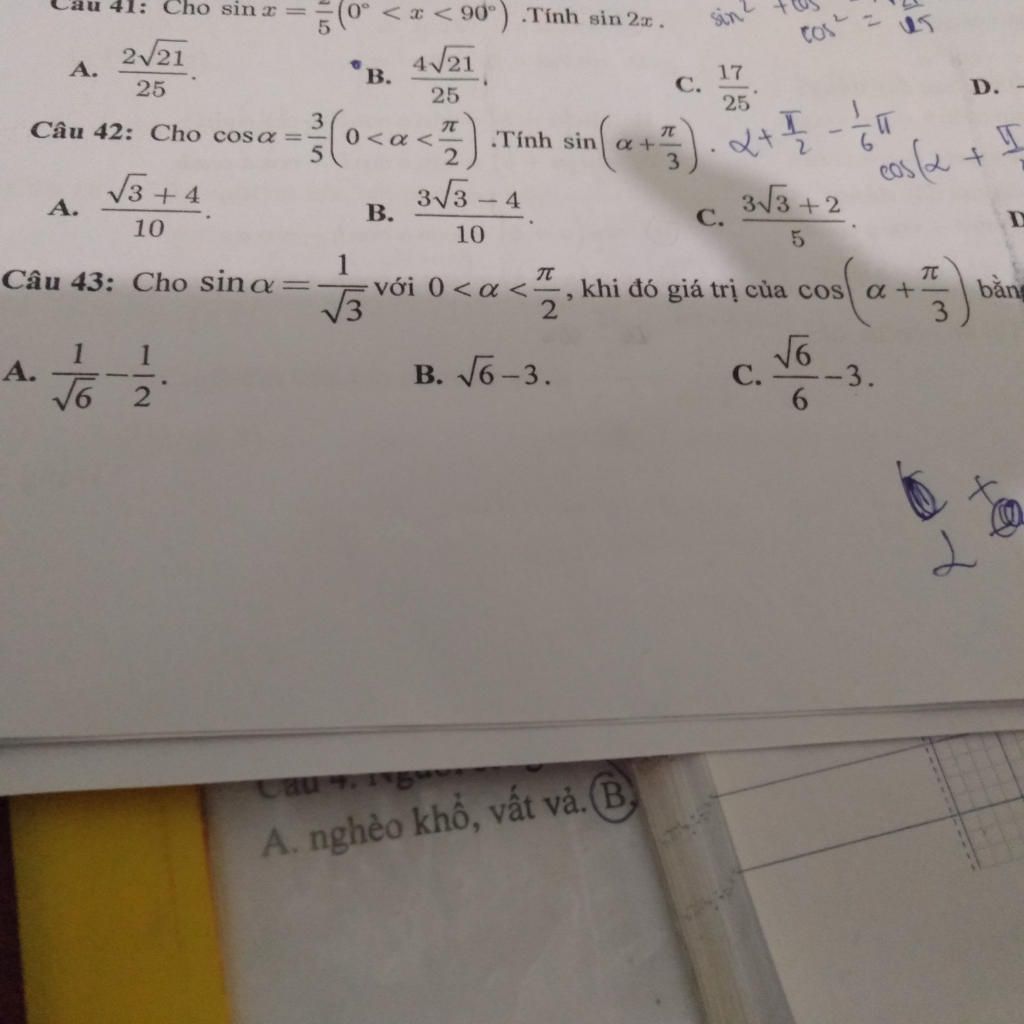 Câu 41: Cho sin x = 2/5 (0° < x < 90°) .Tính sin 2x . sin²
cos² = 25
A. 2√21/25 . B. 4√21/25 . C. 17/25 . D.
Câu 42: Cho cos α = 3/5 (0 < α < π/2) .Tính sin(α + π/3) . α + π/2 - 1/6 π
cos(α + π
A. (√3 + 4)/10 . B. (3√3 − 4)/10 . C. (3√3 + 2)/5 .
Câu 43: Cho sin α = 1/√3 với 0 < α < π/2 , khi đó giá trị của cos(α + π/3) bằn
A. 1/√6 − 1/2 . B. √6 − 3 . C. √6/6 − 3 .
+
2
Câu 4.
A. nghèo khổ, vất vả. B,